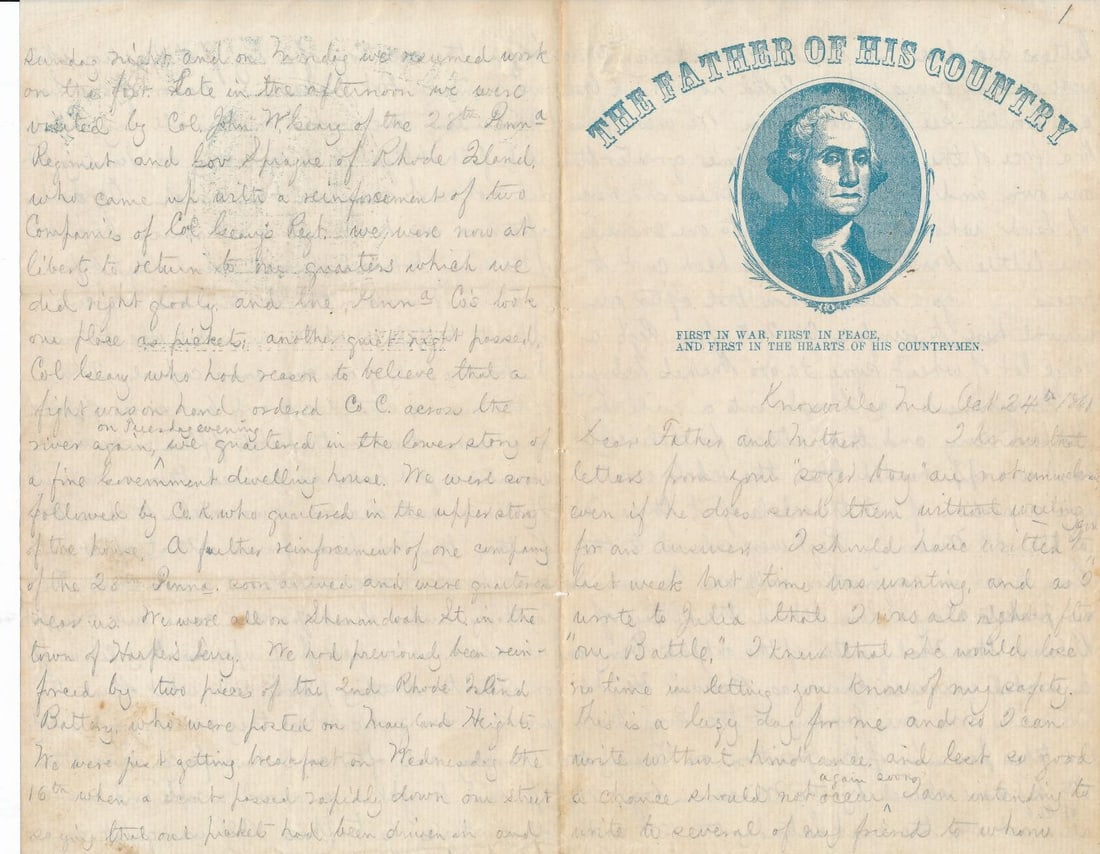 1
THE FATHER OF HIS COUNTRY
FIRST IN WAR, FIRST IN PEACE,
AND FIRST IN THE HEARTS OF HIS COUNTRYMEN.
Knoxville Md, Oct 24th 1861
Dear Father and Mother I know that
letters from your "soger boy" are not unwelcome
even if he does send them without waiting
for an answer. I should have written you
last week but time was wanting, and as I
wrote to Julia that I was all right after
"our Battle," I knew that she would lose
no time in letting you know of my safety.
This is a lazy day for me and so I can
write without hindrance, and lest so good
a chance should not occur again soon, I am intending to
write to several of my friends to whom
Sunday night and on Monday we resumed work
on the Late in the afternoon we were
visited by Col. John W Geary of the 28th Penna
Regiment and Gov Sprague of Rhode Island,
who came up with a reinforcement of two
Companies of Col Geary's Regt. we were now at
liberty to return to our quarters which we
did right gladly, and the Penna Co's took
our place as pickets, another quiet night passed,
Col Geary who had reason to believe that a
fight was on hand ordered Co. C. across the
river again, on Tuesday evening we quartered in the lower story of
a fine Government dwelling house. We were soon
followed by Co. K. who quartered in the upper story
of the house. A further reinforcement of one company
of the 28th Penna. soon arrived and were quartered
near us. We were all on Shenandoah St, in the
town of Harpers Ferry. We had previously been rein-
forced by two pieces of the 2nd Rhode Island
Battery, who were posted on Maryland Heights.
We were just getting breakfast on Wednesday the
16th when a passed rapidly down our street
saying that our picket had been driven in and